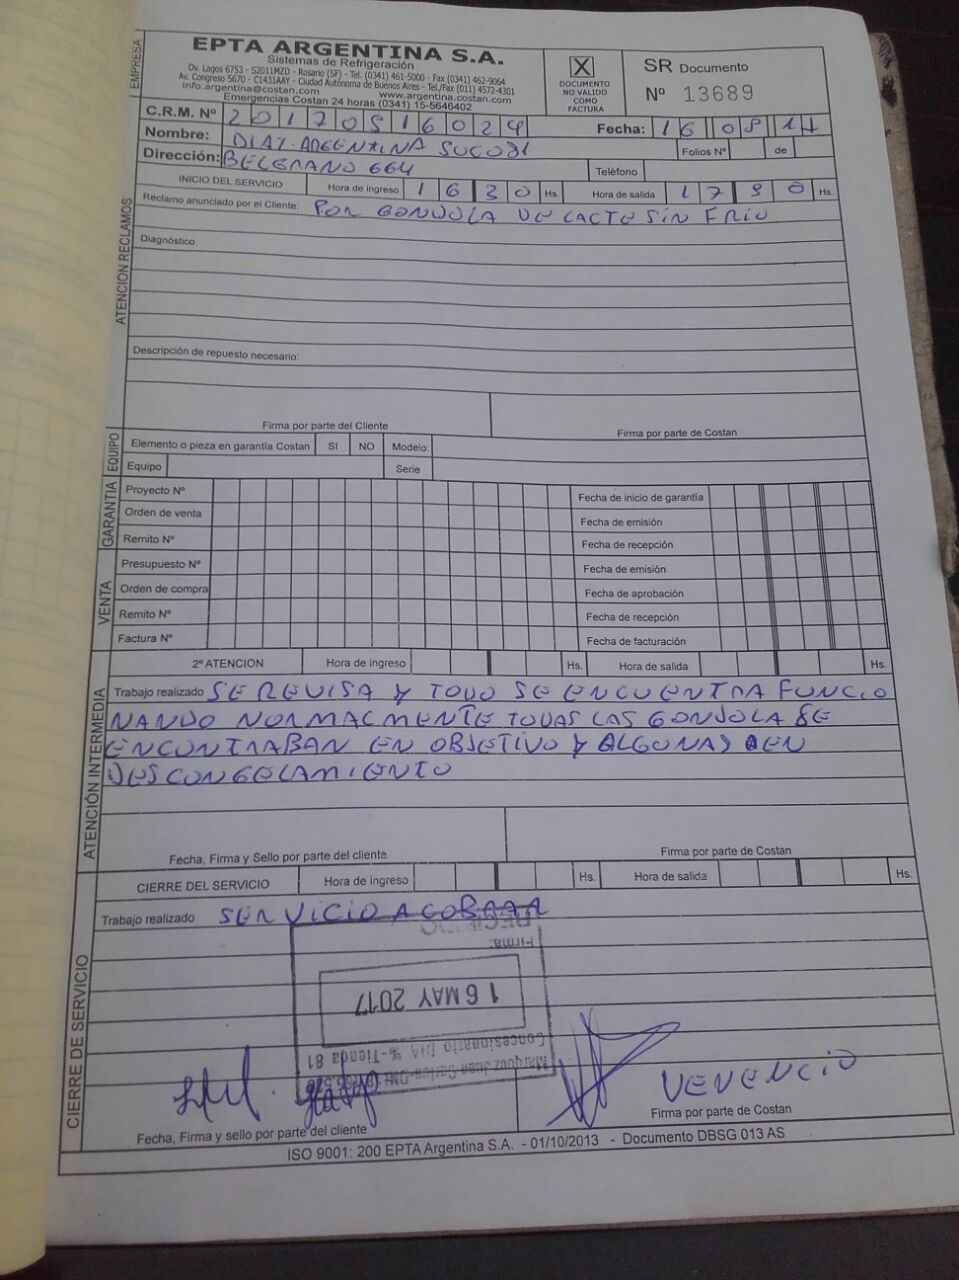 EMPRESA
EPTA ARGENTINA S.A.
Sistemas de Refrigeración
Ov. Lagos 6753 - S2011MZD - Rosario (SF) - Tel. (0341) 461-5000 - Fax (0341) 462-9064
Av. Congreso 5670 - C1431AAY - Ciudad Autónoma de Buenos Aires - Tel./Fax (011) 4572-4301
info.argentina@costan.com www.argentina.costan.com
Emergencias Costan 24 horas (0341) 15-5646402
X
DOCUMENTO
NO VALIDO
COMO
FACTURA
SR Documento
Nº 13689
C.R.M. Nº 20170516024 Fecha: 16
Nombre: DIAZ-ARGENTINA Folios Nº de
Dirección: BELGRANO 664 Teléfono
INICIO DEL SERVICIO Hora de ingreso 1630 Hs. Hora de salida 1730 Hs.
ATENCION RECLAMOS
Reclamo anunciado por el Cliente: POR GONDOLA DE LACTE SIN FRIO
Diagnóstico
Descripción de repuesto necesario:
Firma por parte del Cliente Firma por parte de Costan
EQUIPO
Elemento o pieza en garantía Costan SI NO Modelo:
Equipo Serie
GARANTIA
Proyecto Nº Fecha de inicio de garantía
Orden de venta Fecha de emisión
Remito Nº Fecha de recepción
VENTA
Presupuesto Nº Fecha de emisión
Orden de compra Fecha de aprobación
Remito Nº Fecha de recepción
Factura Nº Fecha de facturación
ATENCIÓN INTERMEDIA
2º ATENCION Hora de ingreso Hs. Hora de salida Hs.
Trabajo realizado SE REVISA Y TODO SE ENCUENTRA FUNCIO
NANDO NORMALMENTE TODAS LAS GONDOLA SE
ENCONTRABAN EN OBJETIVO Y ALGUNAS EN
DESCONGELAMIENTO
Fecha, Firma y Sello por parte del cliente Firma por parte de Costan
CIERRE DE SERVICIO
CIERRE DEL SERVICIO Hora de ingreso Hs. Hora de salida Hs.
Trabajo realizado SERVICIO A COBRAR
RECIBIDO
Firma:
16 MAY 2017
Concesionario DIA %-Tienda 81
Marquez Juan Carlos-DNI
VENENCIO
Fecha, Firma y sello por parte del cliente Firma por parte de Costan
ISO 9001: 200 EPTA Argentina S.A. - 01/10/2013 - Documento DBSG 013 AS